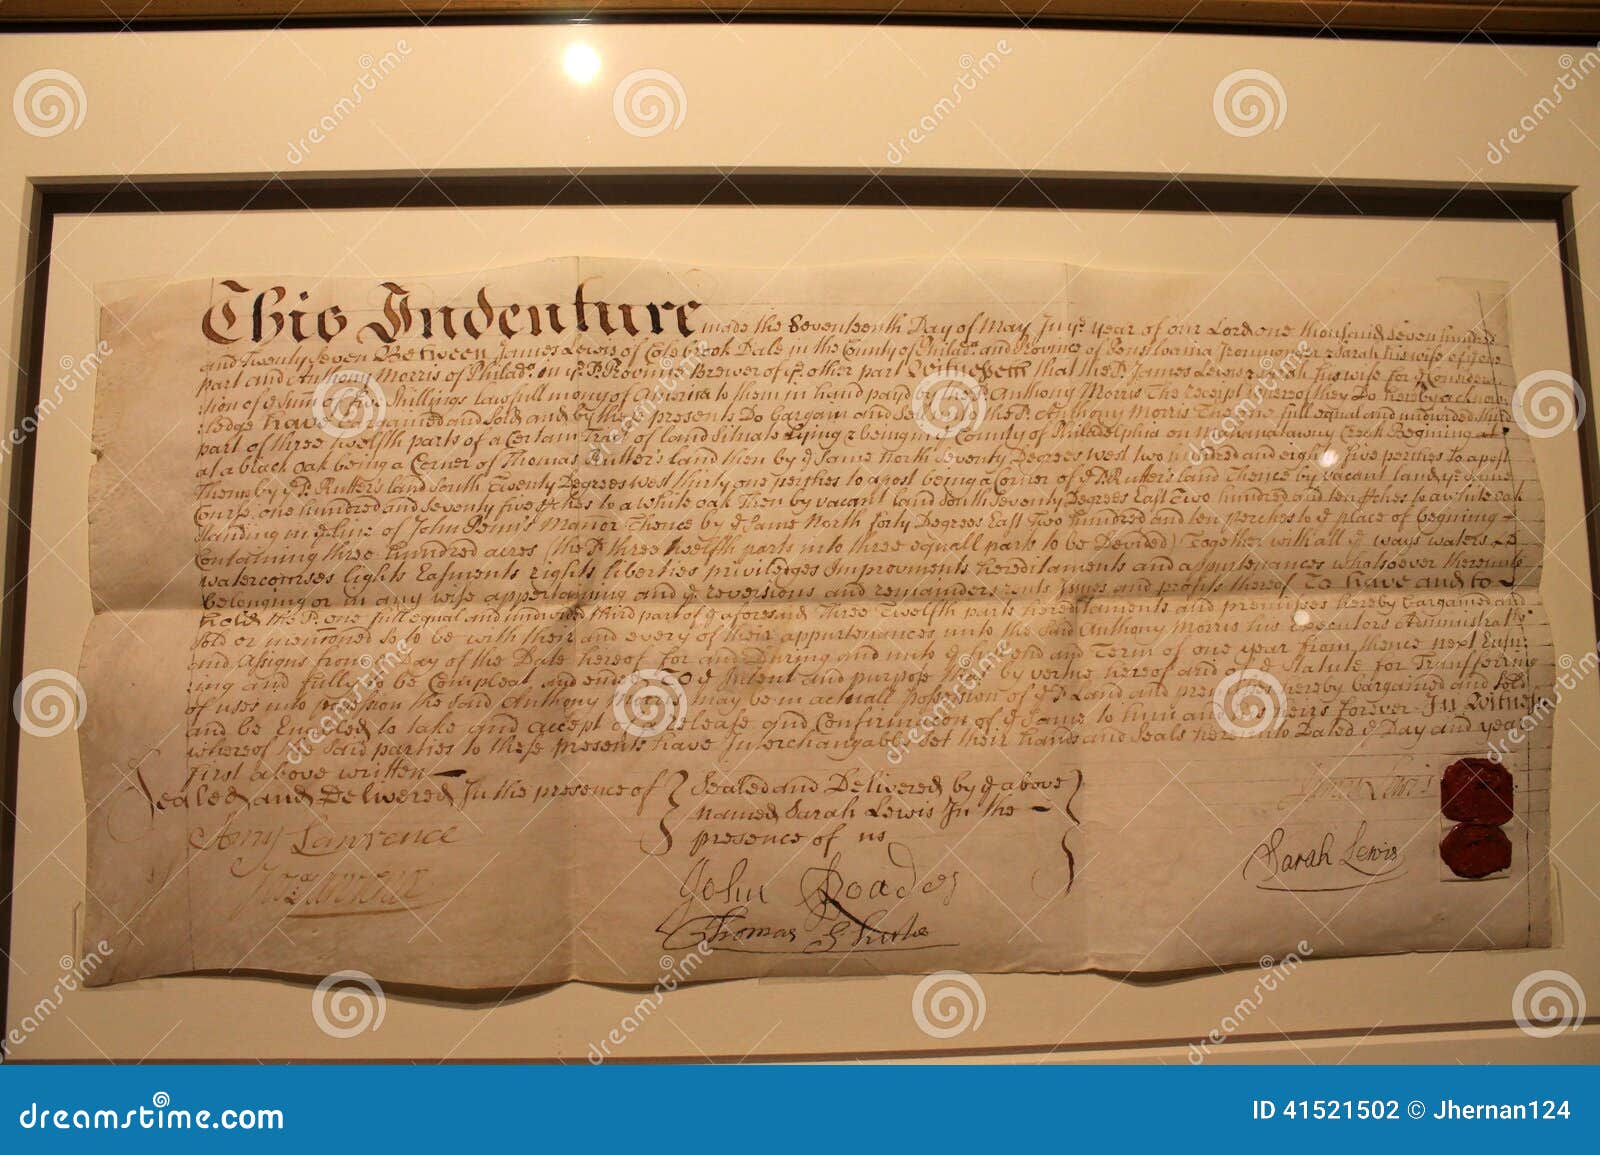 This Indenture made the Seventeenth Day of May In ye year of our Lord one thousand seven hundred
and Twenty Seven Between James Lewis of Colebrook Dale in the County of Philada. and Province of Pensilvania Ironmonger & Sarah his wife of ye one
part and Anthony Morris of Philada. in ye Province Brewer of ye other part Witnesseth that the sd. James Lewis & Sarah his wife for ye Consider=
ation of ye Sum of five Shillings lawfull mony of America to them in hand payd by the sd. Anthony Morris The receipt whereof they Do hereby acknow=
ledge have bargained and Sold and by these presents Do Bargain and Sell to the sd. Anthony Morris The one full equal and undivided third
part of three twelfth parts of a Certain Tract of land Situate Lying & being in ye County of Philadelphia on Creek Begining at
at a black oak being a Corner of Thomas Rutter's land then by ye Same North Seventy Degrees west two hundred and eighty five perches to a post
Thence by ye sd. Rutter's land South Twenty Degrees west thirty one perches to a post being a Corner of ye sd. Rutter's land Thence by vacant land ye Same
Curse one hundred and seventy five to a white oak Then by vacant land South Seventy Degrees East Two hundred and ten to a white oak
Standing in ye line of John Penn's Manor Thence by ye Same North forty Degrees East Two hundred and ten perches to ye place of begining
Containing three hundred acres (the sd. three twelfth parts into three equall parts to be Devided) Together with all ye ways waters
watercourses lights Easments rights liberties priviledges Improvments hereditaments and appurtenances whatsoever thereunto
belonging or in any wise appertaining and ye reversions and remainders rents Issues and profits thereof To have and to
hold the sd. one full equal and undivided third part of ye aforesaid Three Twelfth parts hereditaments and premisses hereby bargained and
sold or mentioned so to be with their and every of their appurtenances unto the said Anthony Morris his Executors Administrators
and Assigns from ye Day of the Date hereof for and During and unto ye full end and Term of one year from thence next Ensu=
ing and fully to be Compleat and ended To ye Intent and purpose that by vertue hereof and of ye Statute for Transferring
of uses into possession the said Anthony Morris may be in actuall possession of ye sd. Land and premisses hereby bargained and Sold
and be Enabled to take and accept of a Release and Confirmation of ye Same to him and his heirs forever In Witness
whereof the said parties to these presents have Interchangably Set their hands and Seals hereunto Dated ye Day and year
first above written
Sealed and Delivered In the presence of
Lawrence
Sealed and Delivered by ye above
named Sarah Lewis In the
presence of us
John
Thomas
James Lewis
Sarah Lewis
dreamstime
dreamstime.com
ID 41521502 © Jhernan124